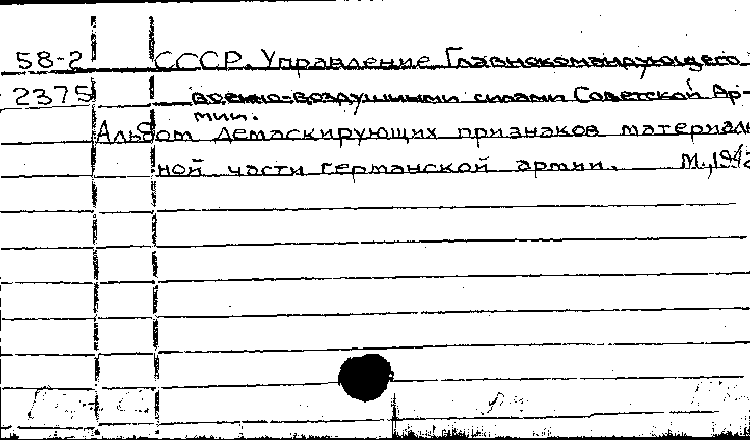 58-2 СССР. Управление Главнокомандующего
2375 военно-воздушными силами Советской Ар-
мии.
Альбом демаскирующих признаков материаль
ной части германской армии. М., 194